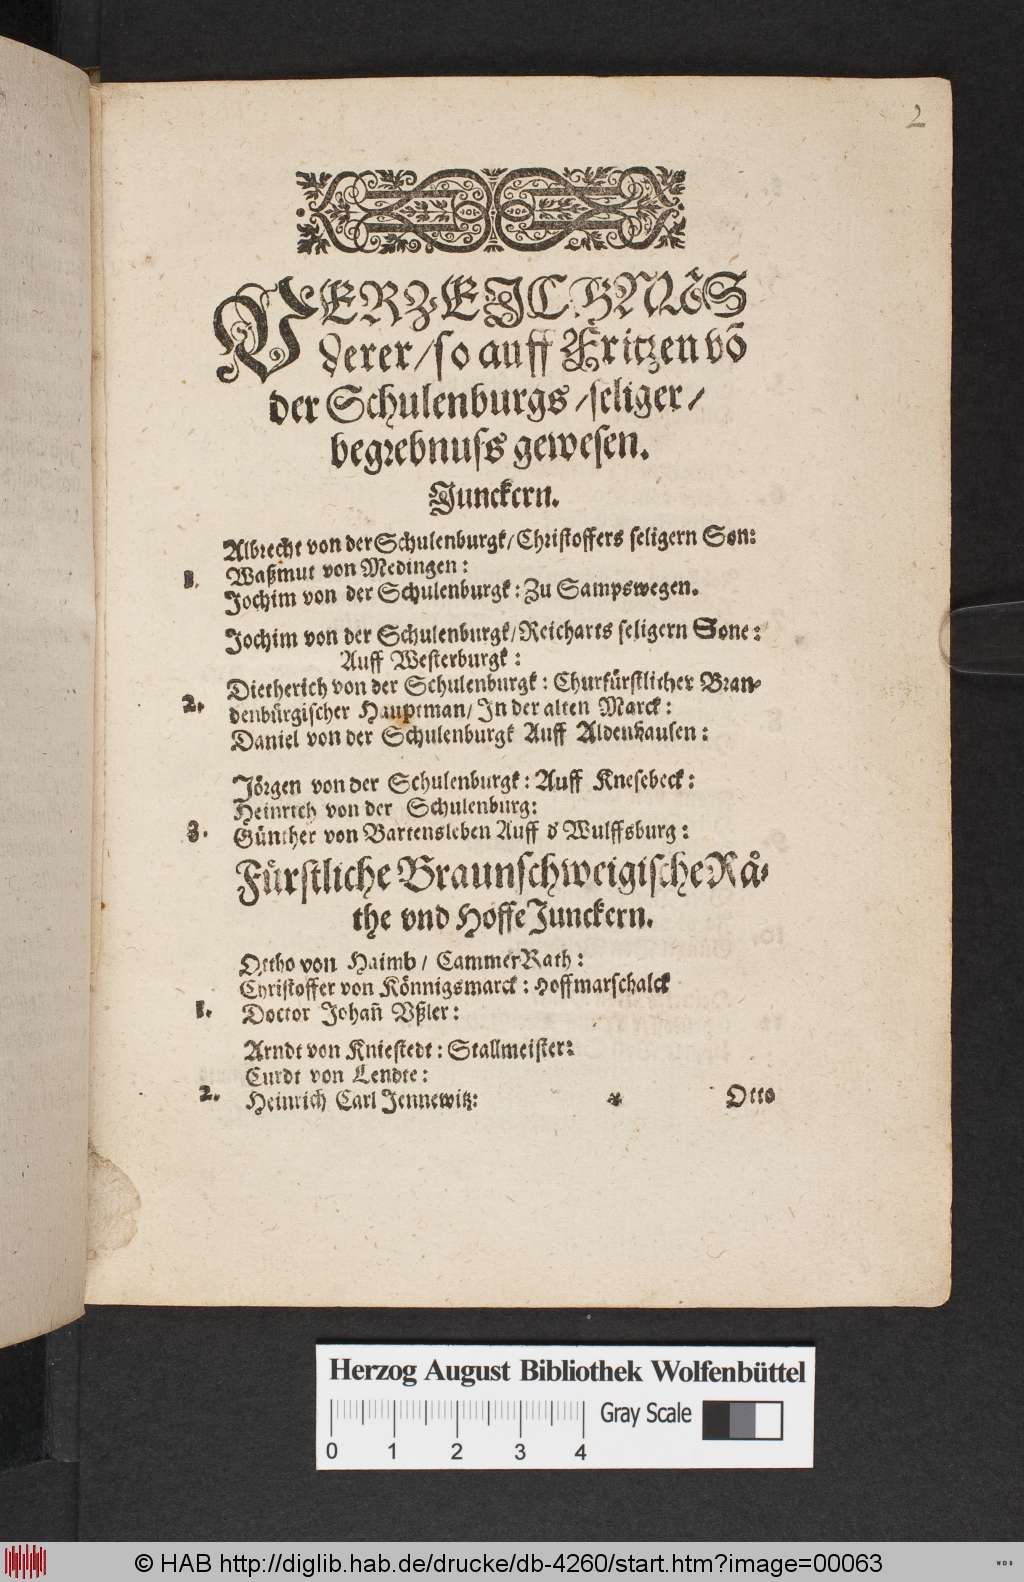 2
VERZEICHNŮS
derer/so auff Fritzen vō
der Schulenburgs/seliger/
begrebnuss gewesen.
Junckern.
Albrecht von der Schulenburgk/Christoffers seligern Son:
1. Waßmut von Medingen:
Jochim von der Schulenburgk: Zu Sampswegen.
Jochim von der Schulenburgk/Reicharts seligern Sone:
Auff Westerburgk:
Dietherich von der Schulenburgk: Churfürstlicher Bran-
2. denbürgischer Hauptman/In der alten Marck:
Daniel von der Schulenburgk Auff Aldenhausen:
Jörgen von der Schulenburgk: Auff Knesebeck:
Heinrich von der Schulenburg:
3. Günther von Bartensleben Auff d Wulffsburg:
Fürstliche Braunschweigische Rå-
the vnd Hoffe Junckern.
Ottho von Haimb/ Cammer Rath:
Christoffer von Könnigsmarck: Hoffmarschalck
1. Doctor Johañ Vßler:
Arndt von Kniestedt: Stallmeister:
Curdt von Lendte:
2. Heinrich Carl Jennewitz:
* Otto
Herzog August Bibliothek Wolfenbüttel
0 1 2 3 4 Gray Scale
© HAB http://diglib.hab.de/drucke/db-4260/start.htm?image=00063
WDB